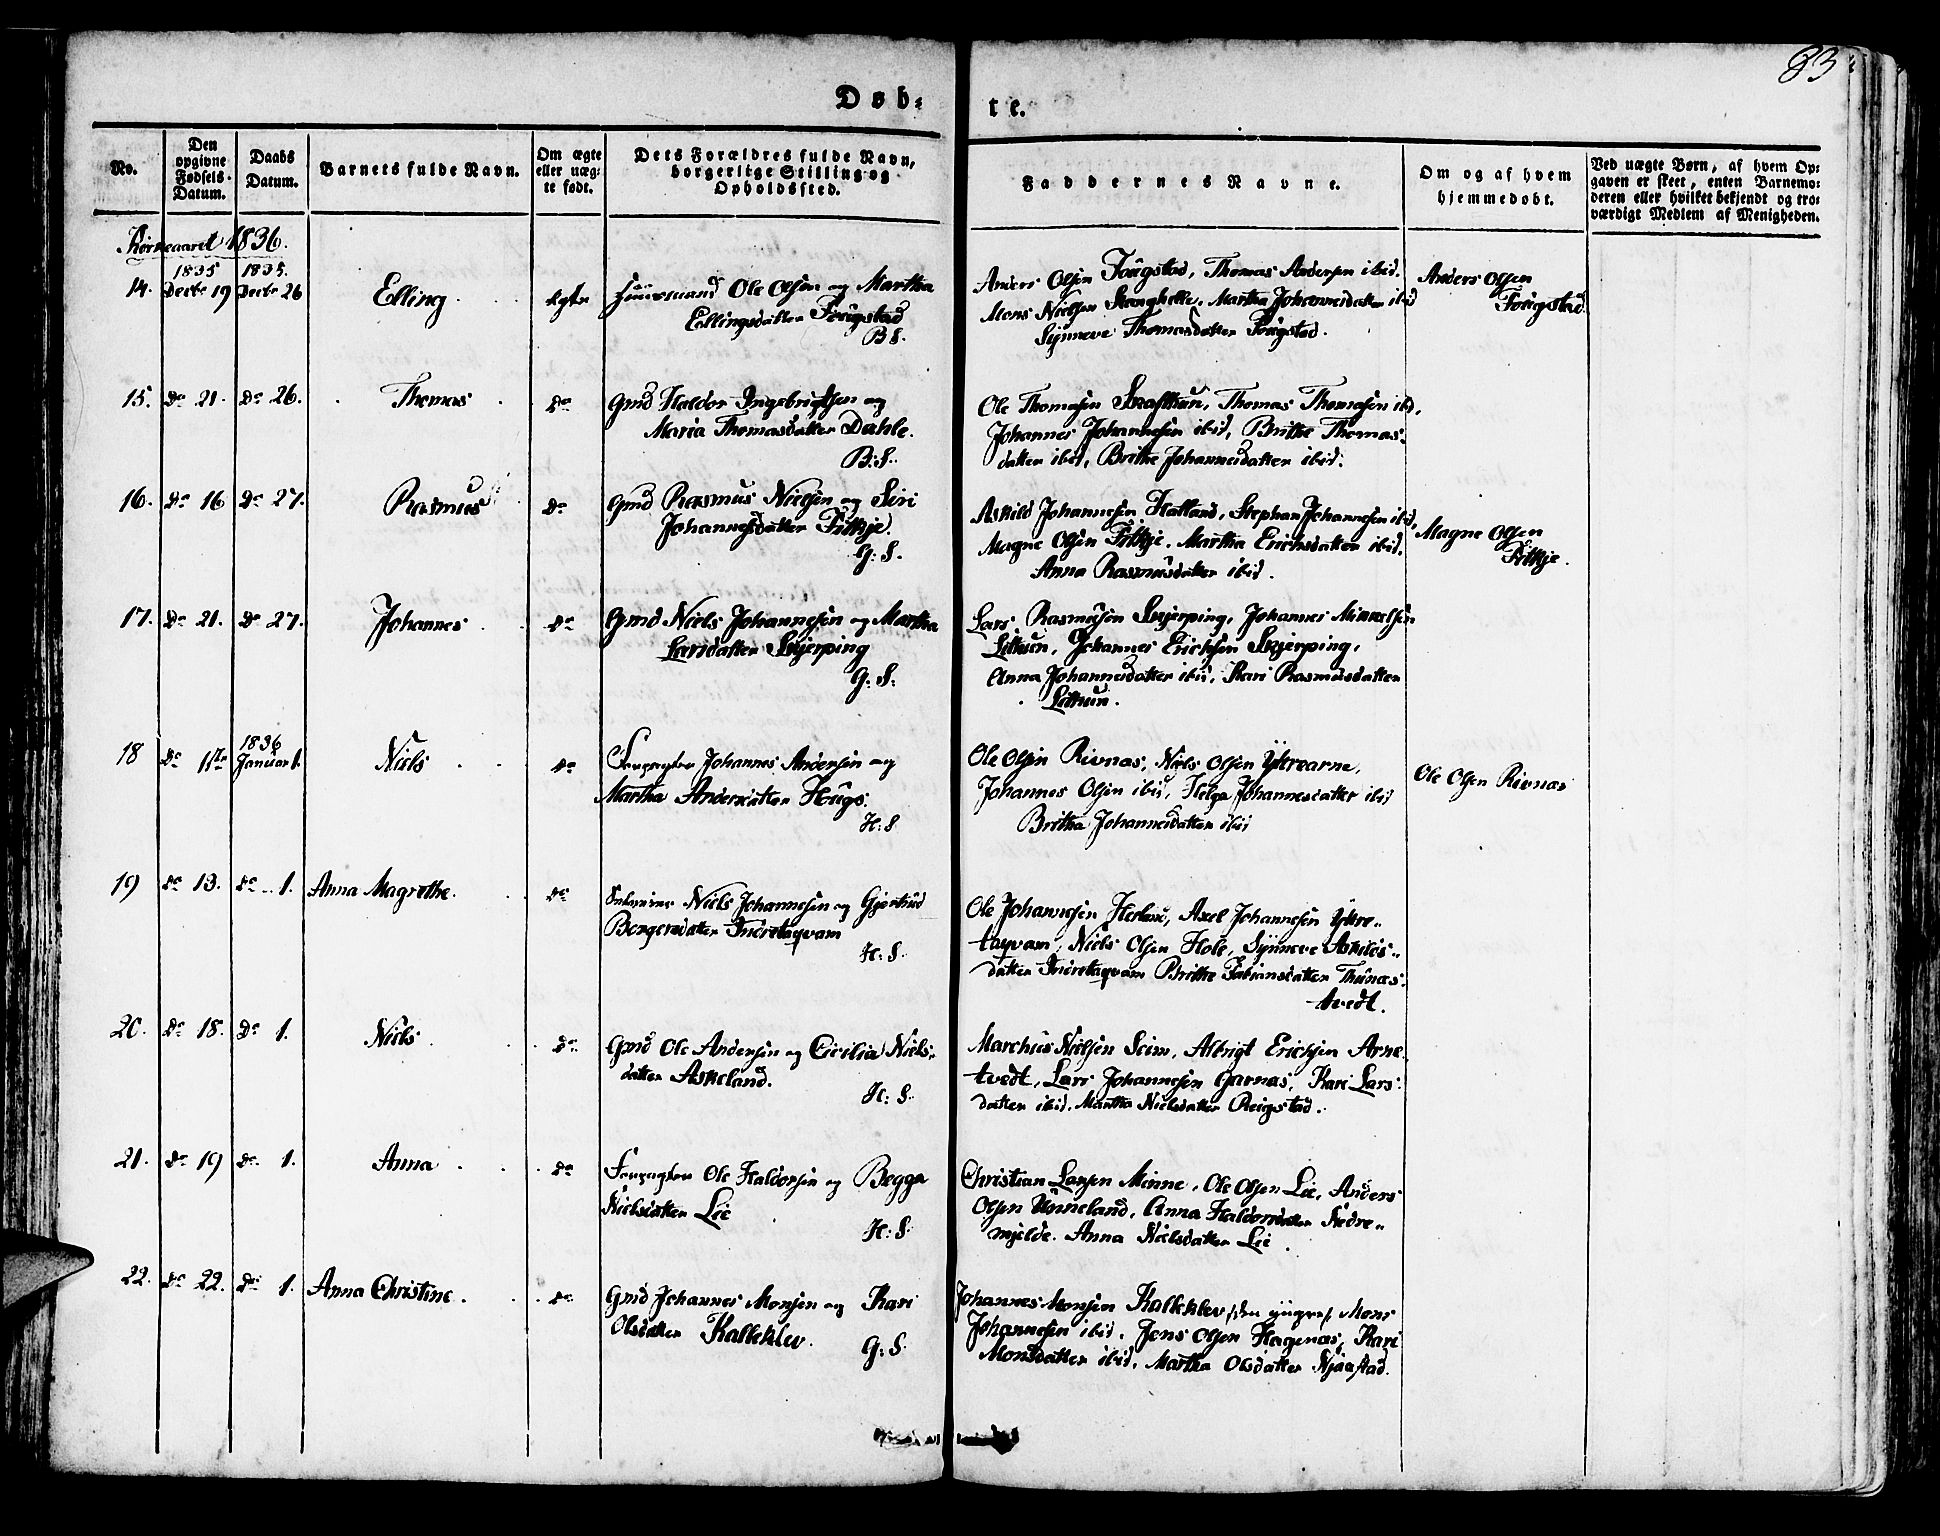 83
Døb-
te.
No.
Den
opgivne
Fødsels-
Datum.
Daabs
Datum.
Barnets fulde Navn.
Om ægte
eller uæg-
te født.
Dets Forældres fulde Navn,
borgerlige Stilling og
Opholdssted.
Faddernes Navne.
Om og af hvem
hjemmedøbt.
Ved uægte Børn, af hvem Op-
gaven er skeet, enten Barnemo-
deren eller hvilket bekjendt og tro-
værdigt Medlem af Menigheden.
Kirkeaaret 1836.
1835 1835.
14. Decbr 19 Decbr 26 Elling ægte Huusmand Ole Olsen og Martha
Ellingsdatter Fougstad
B S.
Anders Olsen Fougstad, Thomas Andersen ibid.
Mons Nielsen Stanghelle, Martha Johannesdatter ibid
Synneve Thomasdatter Fougstad.
Anders Olsen
Fougstad.
15. Do 21. Do 26. Thomas Do Gmd Haldor Ingebrigtsen og
Maria Thomasdatter Dahle.
B: S.
Ole Thomesen Skafthun, Thomas Thomesen ibid,
Johannes Johannesen ibid, Brithe Thomas-
datter ibid, Brithe Johannesdatter ibid.
16. Do 16 Do 27. Rasmus Do Gmd Rasmus Nielsen og Siri
Johannesdatter Fitkje.
G: S.
Askild Johannesen Hatland, Stephan Johannesen ibid,
Magne Olsen Fitkje, Martha Erichsdatter ibid.
Anna Rasmusdatter ibid.
Magne Olsen
Fitkje.
17. Do 21. Do 27. Johannes Do Gmd Niels Johannesen og Martha
Larsdatter Skjerping
G: S:
Lars Rasmusen Skjerping, Johannes Mikkelsen
Litthun, Johannes Erichsen Skjerping,
Anna Johannesdatter ibid, Kari Rasmusdatter
Litthun.
1836
18 Do 1ste Januar 1. Niels Do Forpagter Johannes Andersen og
Martha Andersdatter Houge.
H: S
Ole Olsen Rivnas, Niels Olsen Yttrearne,
Johannes Olsen ibid, Helga Johannesdatter ibid
Britha Johannesdatter ibid
Ole Olsen Rivnas
19 Do 13. Do 1. Anna Magrethe. Do Niels Johannesen og Gjertrud
Bergersdatter Indretaqvam
H: S.
Ole Johannesen Herland, Axel Johannesen Yttre-
taqvam, Niels Olsen Hole, Synneve Askilds-
datter Indretaqvam Brithe Fabiansdatter Thunes-
tvedt.
20. Do 18. Do 1. Niels Do Gmd Ole Andersen og Cicilia Niels-
datter Askeland.
H: S.
Marchus Nielsen Seim, Albrigt Erichsen Arne-
tvedt, Lars Johannesen Garnas, Kari Lars-
datter ibid. Martha Nielsdatter Reigstad.
21. Do 19 Do 1. Anna Do Forpagter Ole Haldorsen og Begga
Nielsdatter Lie
H: S.
Christian Larsen Minne, Ole Olsen Lie, Anders
Olsen Unneland, Anna Haldorsdatter Nedre-
mjelde. Anna Nielsdatter Lie.
22. Do 22. Do 1. Anna Christine. Do Gmd Johannes Monsen og Kari
Olsdatter Kalleklev.
G: S.
Johannes Monsen Kalleklev, den yngre, Mons
Johannesen ibid. Jens Olsen Hagenas, Kari
Monsdatter ibid, Martha Olsdatter Kjaastad.